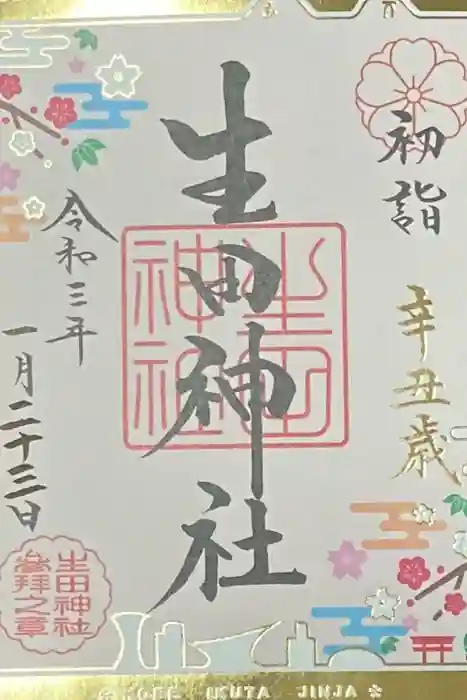 初詣
辛丑歳
生田神社
生田神社
令和三年
一月二十三日
生田神社
参拝之章
KOBE IKUTA JINJA